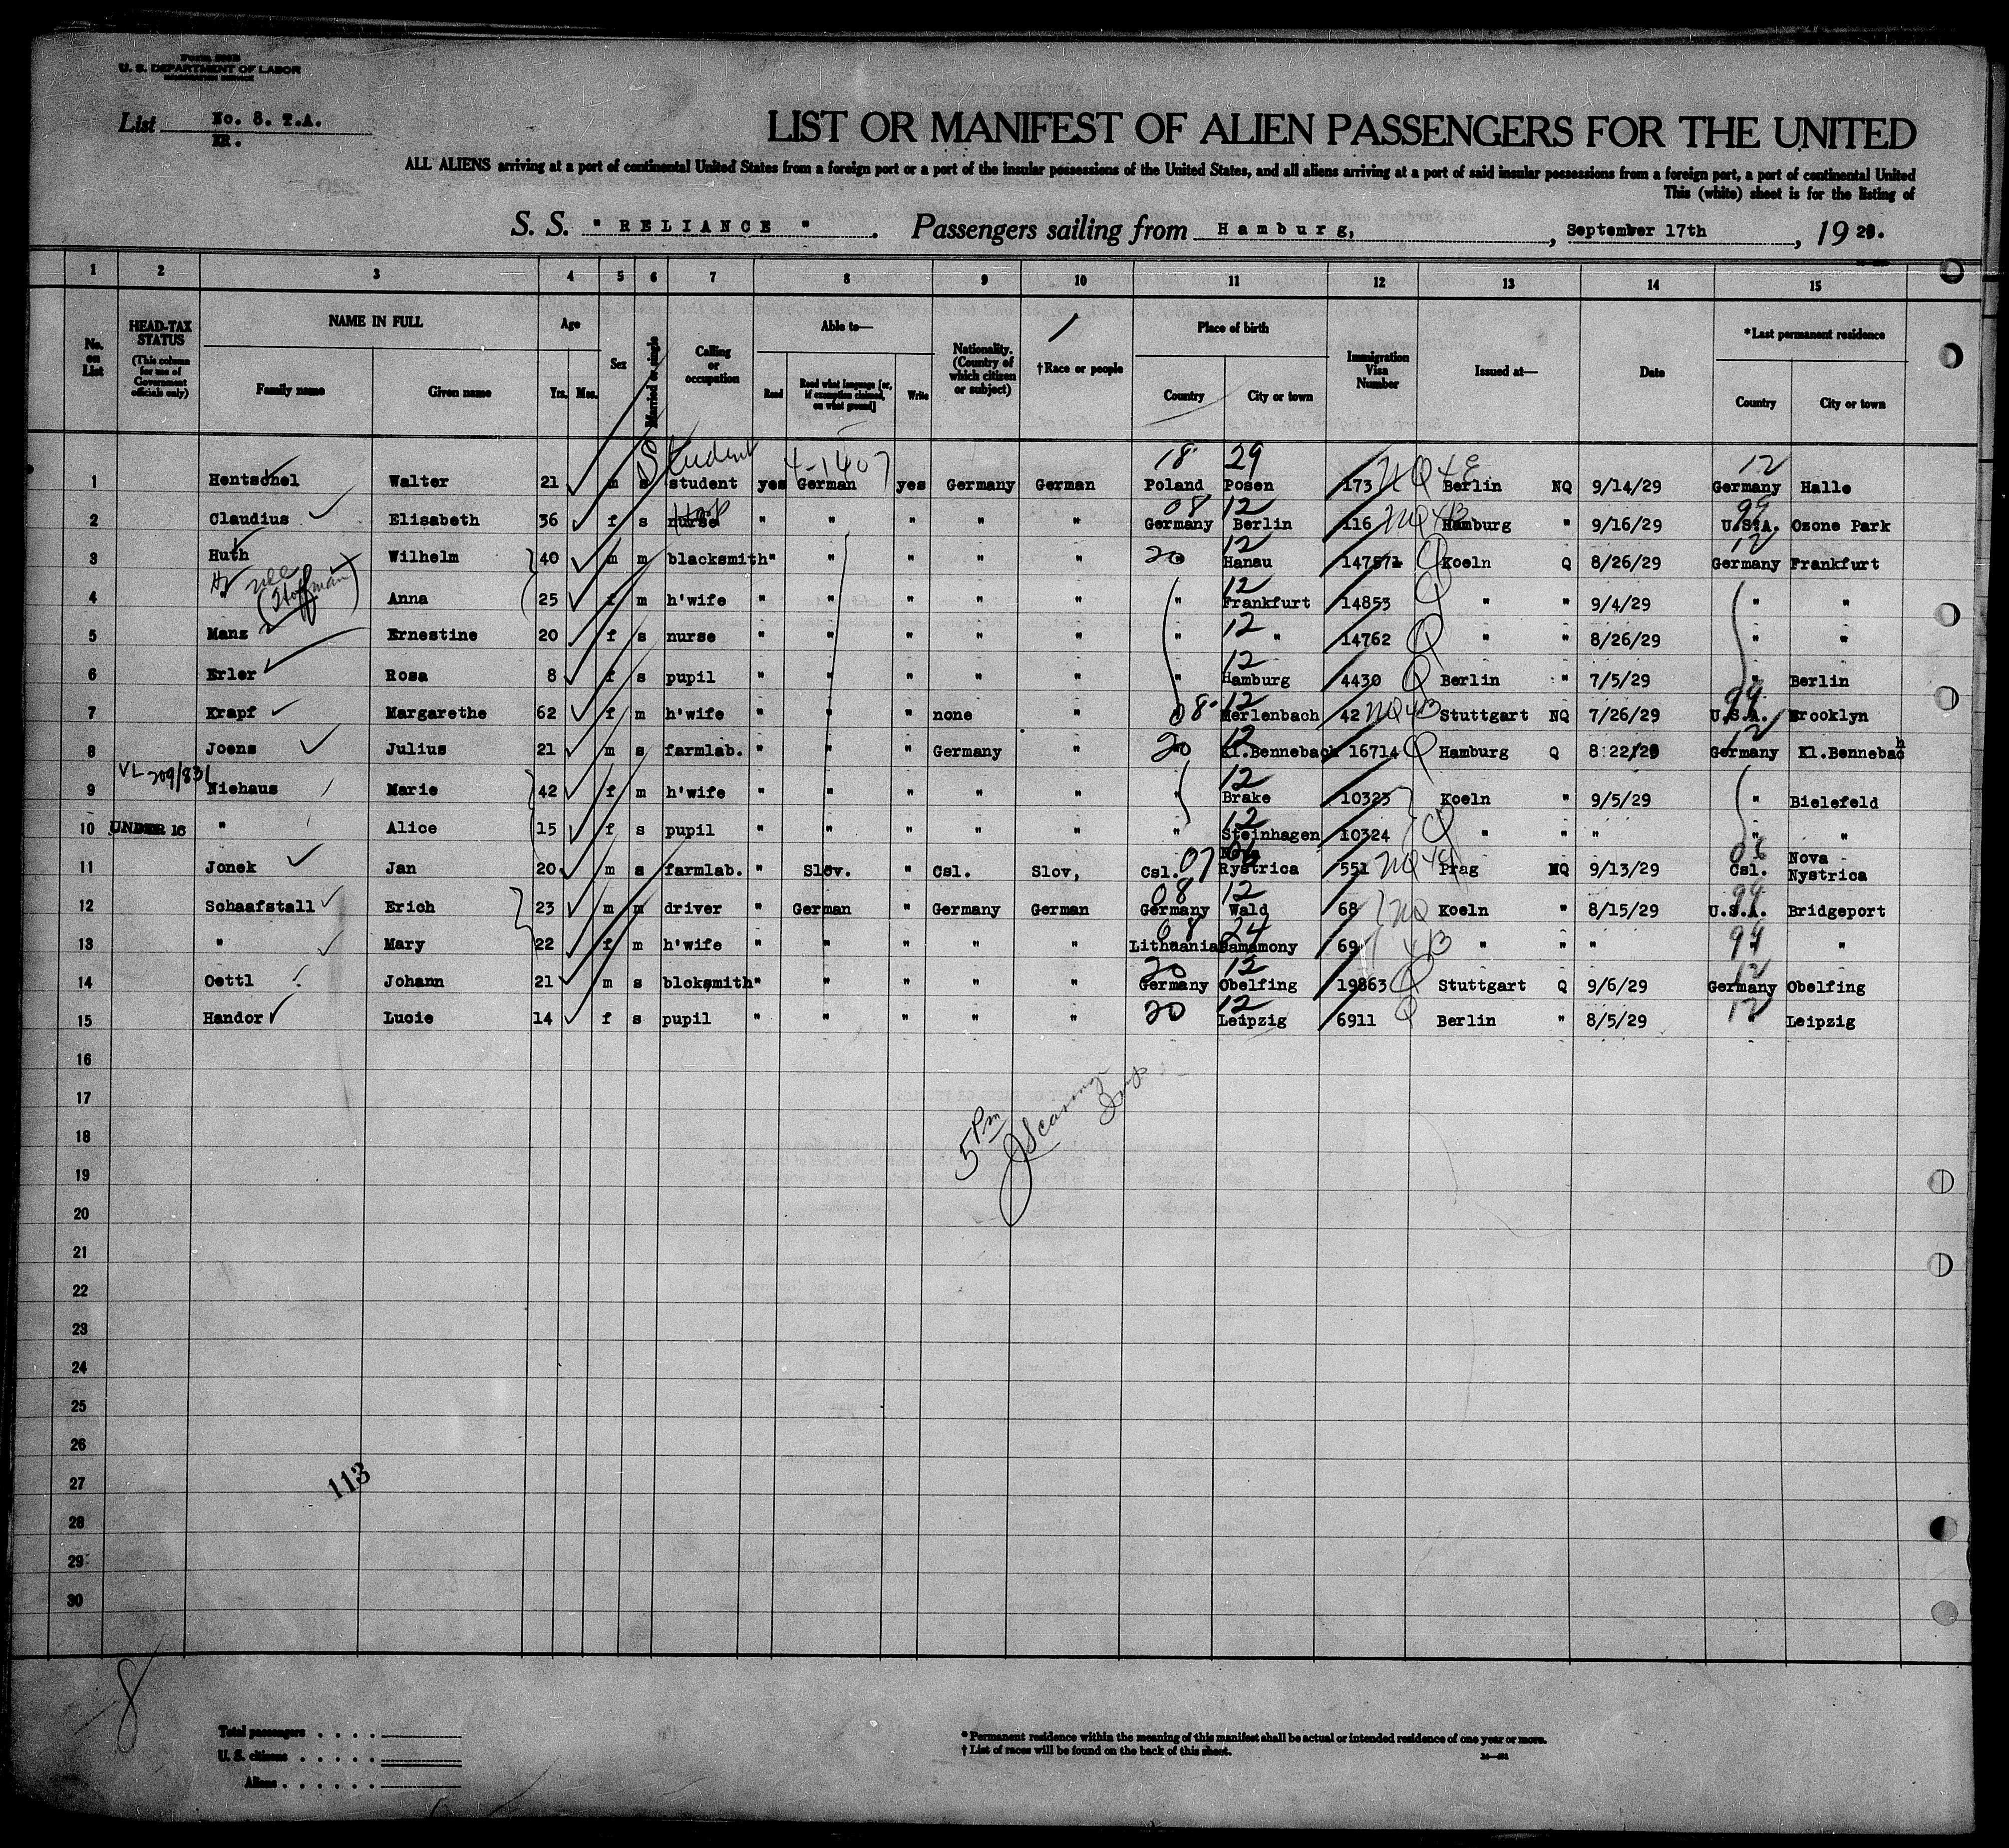 U. S. DEPARTMENT OF LABOR
List No. 8. T.A.
KR.
LIST OR MANIFEST OF ALIEN PASSENGERS FOR THE UNITED
ALL ALIENS arriving at a port of continental United States from a foreign port or a port of the insular possessions of the United States, and all aliens arriving at a port of said insular possessions from a foreign port, a port of continental United
This (white) sheet is for the listing of
S. S. " RELIANCE ". Passengers sailing from Hamburg, , September 17th , 19 29.
1 2 3 4 5 6 7 8 9 10 11 12 13 14 15
No. on List
HEAD-TAX STATUS (This column for use of Government officials only)
NAME IN FULL
Family name
Given name
Age
Yrs. Mos.
Sex
Married or single
Calling or occupation
Able to—
Read
Read what language [or, if exemption claimed, on what ground]
Write
Nationality. (Country of which citizen or subject)
†Race or people
Place of birth
Country
City or town
Immigration Visa Number
Issued at—
Date
*Last permanent residence
Country
City or town
Student 4-1407 18 29 12
1 Hentschel Walter 21 m s student yes German yes Germany German Poland Posen 173 NQ 48 Berlin NQ 9/14/29 Germany Halle
08 12 99
2 Claudius Elisabeth 36 f s nurse " " " " " Germany Berlin 116 NQ 4B Hamburg " 9/16/29 U.S.A. Ozone Park
12 12
3 Huth Wilhelm 40 m m blacksmith " " " " " 20 Hanau 147571 Q Koeln Q 8/26/29 Germany Frankfurt
nee (Hoffman) 12
4 " Anna 25 f m h'wife " " " " " " Frankfurt 14853 Q " " 9/4/29 " "
12
5 Manz Ernestine 20 f s nurse " " " " " " " 14762 Q " " 8/26/29 " "
12
6 Erler Rosa 8 f s pupil " " " " " " Hamburg 4430 Q Berlin " 7/5/29 " Berlin
12 99
7 Krapf Margarethe 62 f m h'wife " " " none " 08 Herlenbach 42 NQ 4B Stuttgart NQ 7/26/29 U.S.A. Brooklyn
12 12
8 Joens Julius 21 m s farmlab. " " " Germany " 20 Kl.Bennebach 16714 Q Hamburg Q 8 22/29 Germany Kl.Bennebach
VL 209/831 12
9 Niehaus Marie 42 f m h'wife " " " " " " Brake 10323 Koeln " 9/5/29 " Bielefeld
12
10 UNDER 16 " Alice 15 f s pupil " " " " " " Steinhagen 10324 Q " " " " "
Nova 06 06 Nova
11 Jonek Jan 20 m s farmlab. " Slov. " Csl. Slov, Csl. 07 Rystrica 551 NQ Prag NQ 9/13/29 Csl. Nystrica
08 12 99
12 Schaafstall Erich 23 m m driver " German " Germany German Germany Wald 68 NQ Koeln " 8/15/29 U.S.A. Bridgeport
08 24 99
13 " Mary 22 f m h'wife " " " " " Lithuania Pamamony 69 4B " " " " "
20 12 12
14 Oettl Johann 21 m s blcksmith " " " " " Germany Obelfing 19863 Q Stuttgart Q 9/6/29 Germany Obelfing
12 12
15 Handor Lucie 14 f s pupil " " " " " 20 Leipzig 6911 Q Berlin " 8/5/29 " Leipzig
16
17
5 Pm
18
19
20
21
22
23
24
25
26
27
113
28
29
30
8
Total passengers . . . .
U. S. citizens . . . . .
Aliens . . . . . .
* Permanent residence within the meaning of this manifest shall be actual or intended residence of one year or more.
† List of races will be found on the back of this sheet.